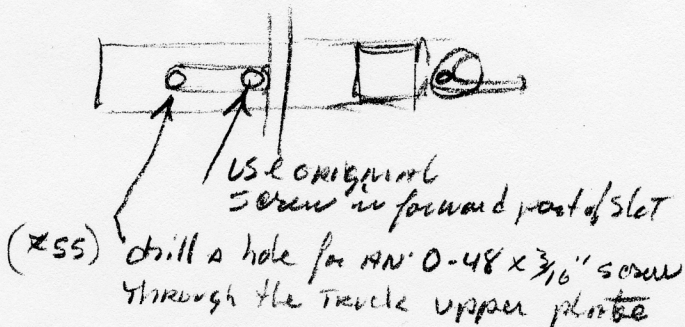 use original
screw in forward part of slot
(#55) drill a hole for AN 0-48 x 3/16" screw
through the truck upper plate